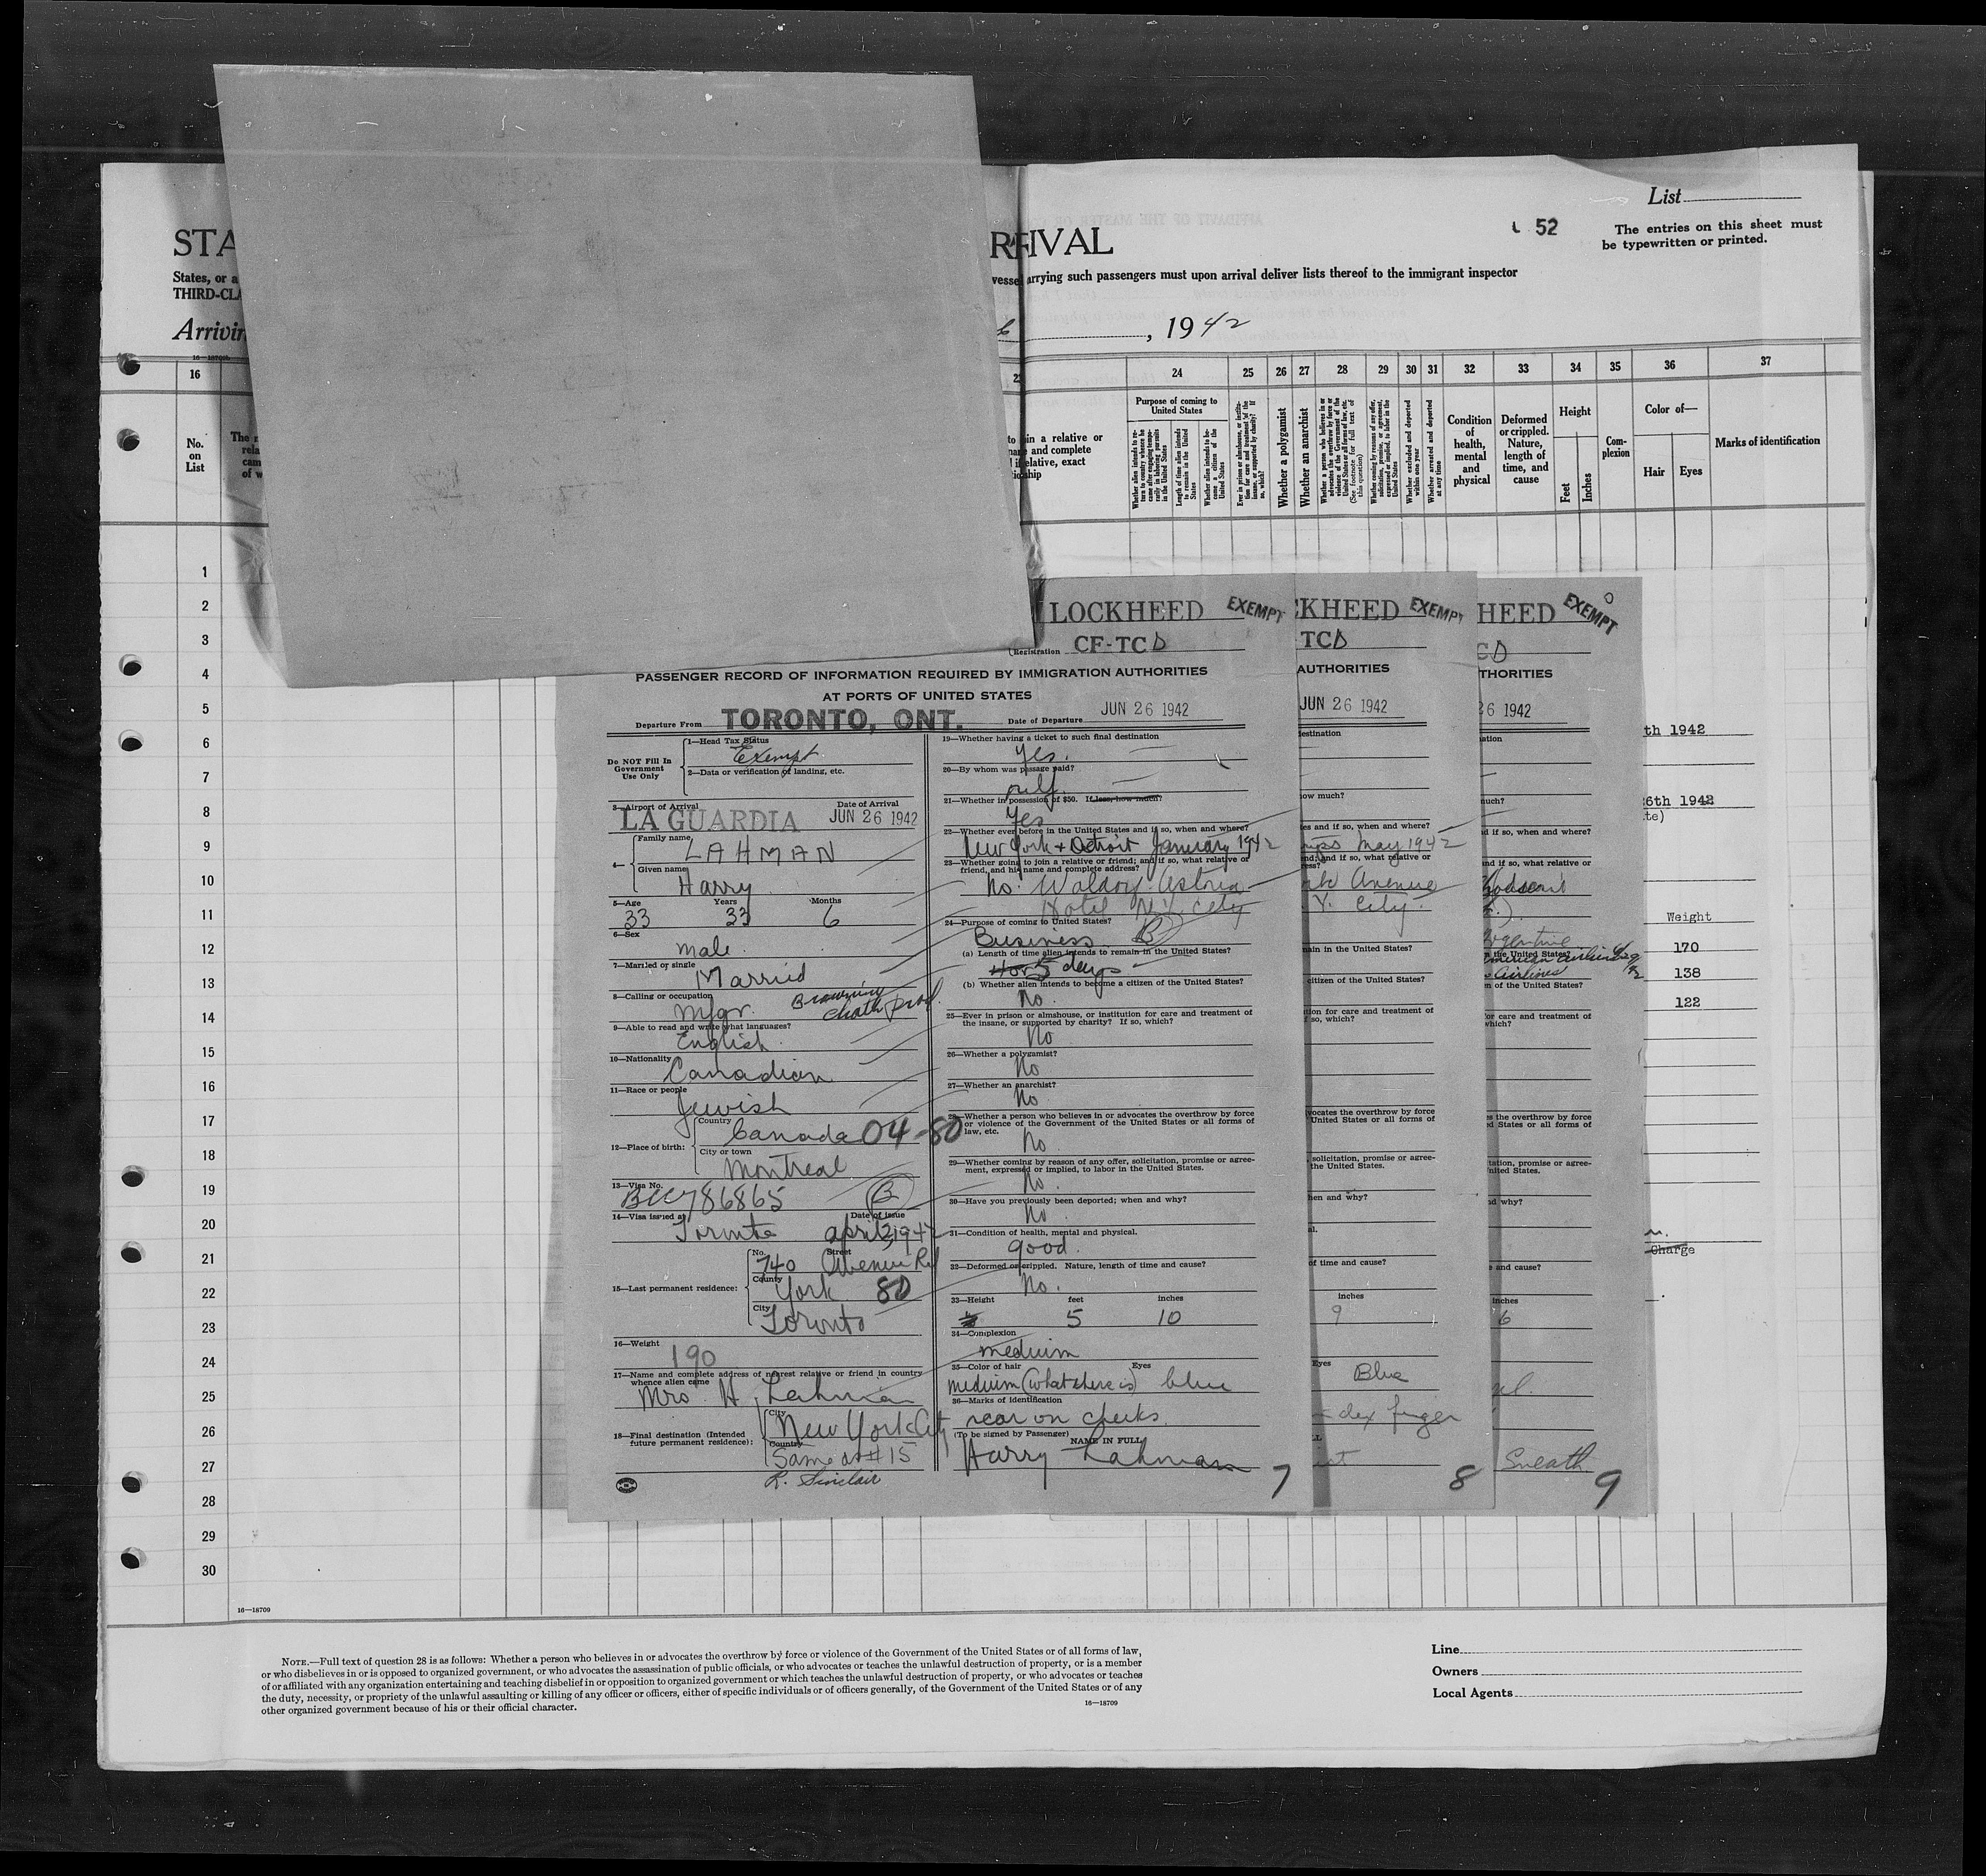 List
52
The entries on this sheet must
be typewritten or printed.
STA
RIVAL
States, or a
vesse arrying such passengers must upon arrival deliver lists thereof to the immigrant inspector
THIRD-CLA
Arrivin
, 1942
16
24
25
26
27
28
29
30
31
32
33
34
35
36
37
No.
on
List
The
rela
cam
of w
to in a relative or
and complete
relative, exact
Purpose of coming to
United States
Whether alien intends to re-
turn to country whence he
came after engaging tempo-
rarily in laboring pursuits
in the United States
Length of time alien intends
to remain in the United
States
Whether alien intends to be-
come a citizen of the
United States
Ever in prison or almshouse, or institu-
tion for care and treatment of the
insane, or supported by charity? If
so, which?
Whether a polygamist
Whether an anarchist
Whether a person who believes in or
advocates the overthrow by force or
violence of the Government of the
United States or all forms of law, etc.
(See footnote for full text of
this question)
Whether coming by reason of any offer,
solicitation, promise, or agreement,
expressed or implied, to labor in the
United States
Whether excluded and deported
within one year
Whether arrested and deported
at any time
Condition
of
health,
mental
and
physical
Deformed
or crippled.
Nature,
length of
time, and
cause
Height
Feet
Inches
Com-
plexion
Color of—
Hair
Eyes
Marks of identification
1
2
3
4
5
6
7
8
9
10
11
12
13
14
15
16
17
18
19
20
21
22
23
24
25
26
27
28
29
30
LOCKHEED EXEMPT
Registration CF-TCD
PASSENGER RECORD OF INFORMATION REQUIRED BY IMMIGRATION AUTHORITIES
AT PORTS OF UNITED STATES
Departure From TORONTO, ONT. Date of Departure JUN 26 1942
Do NOT Fill In
Government
Use Only
1—Head Tax Status
Exempt
2—Data or verification of landing, etc.
3—Airport of Arrival Date of Arrival
LA GUARDIA JUN 26 1942
4— Family name
LAHMAN
Given name
Harry
5—Age Years Months
33 33 6
6—Sex
male
7—Married or single
Married
8—Calling or occupation
Mfgr. Browning
9—Able to read and write what languages?
English
10—Nationality
Canadian
11—Race or people
Jewish
12—Place of birth:
Country
Canada 04-80
City or town
Montreal
13—Visa No.
786865 B
14—Visa issued at Date of issue
Toronto april 2, 1942
15—Last permanent residence:
No. Street
740 Avenue Rd
County
York 80
City
Toronto
16—Weight
190
17—Name and complete address of nearest relative or friend in country
whence alien came
Mrs. H. Lahman
18—Final destination (Intended
future permanent residence):
City
New York City
Country
Same as #15
R. Sinclair
19—Whether having a ticket to such final destination
Yes.
20—By whom was passage paid?
self
21—Whether in possession of $50. If less, how much?
Yes
22—Whether ever before in the United States and if so, when and where?
New York + Detroit January 1942
23—Whether going to join a relative or friend; and if so, what relative or
friend, and his name and complete address?
No. Waldorf Astoria
Hotel N.Y. City
24—Purpose of coming to United States?
Business B
(a) Length of time alien intends to remain in the United States?
4 or 5 days
(b) Whether alien intends to become a citizen of the United States?
No.
25—Ever in prison or almshouse, or institution for care and treatment of
the insane, or supported by charity? If so, which?
No
26—Whether a polygamist?
No
27—Whether an anarchist?
No
28—Whether a person who believes in or advocates the overthrow by force
or violence of the Government of the United States or all forms of
law, etc.
No
29—Whether coming by reason of any offer, solicitation, promise or agree-
ment, expressed or implied, to labor in the United States.
No.
30—Have you previously been deported; when and why?
No
31—Condition of health, mental and physical.
good.
32—Deformed or crippled. Nature, length of time and cause?
No.
33—Height feet inches
5 10
34—Complexion
medium
35—Color of hair Eyes
medium (what there is) blue
36—Marks of identification
scar on cheeks.
(To be signed by Passenger) NAME IN FULL
Harry Lahman
7
CKHEED EXEMPT
-TCD
AUTHORITIES
JUN 26 1942
destination
ow much?
es and if so, when and where?
May 1942
and if so, what relative or
Avenue
Y. City.
main in the United States?
citizen of the United States?
tion for care and treatment of
so, which?
vocates the overthrow by force
United States or all forms of
solicitation, promise or agree-
the United States.
hen and why?
al.
of time and cause?
inches
9
Eyes
Blue
dex finger
8
HEED EXEMPT
CD
THORITIES
26 1942
nation
uch?
d if so, when and where?
and if so, what relative or
n the United States?
American Airlines
Airlines
n of the United States?
or care and treatment of
which?
es the overthrow by force
d States or all forms of
tation, promise or agree-
nited States.
nd why?
e and cause?
inches
6
Sneath
9
th 1942
6th 1942
te)
Weight
170
138
122
Charge
16—18709
NOTE.—Full text of question 28 is as follows: Whether a person who believes in or advocates the overthrow by force or violence of the Government of the United States or of all forms of law,
or who disbelieves in or is opposed to organized government, or who advocates the assassination of public officials, or who advocates or teaches the unlawful destruction of property, or is a member
of or affiliated with any organization entertaining and teaching disbelief in or opposition to organized government or which teaches the unlawful destruction of property, or who advocates or teaches
the duty, necessity, or propriety of the unlawful assaulting or killing of any officer or officers, either of specific individuals or of officers generally, of the Government of the United States or of any
other organized government because of his or their official character.
16—18709
Line
Owners
Local Agents